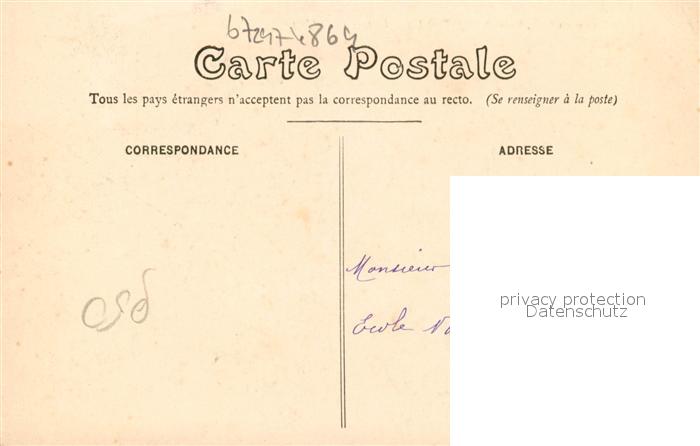 Carte Postale
Tous les pays étrangers n'acceptent pas la correspondance au recto. (Se renseigner à la poste)
CORRESPONDANCE
ADRESSE
Monsieur
privacy protection
Datenschutz
Ecole